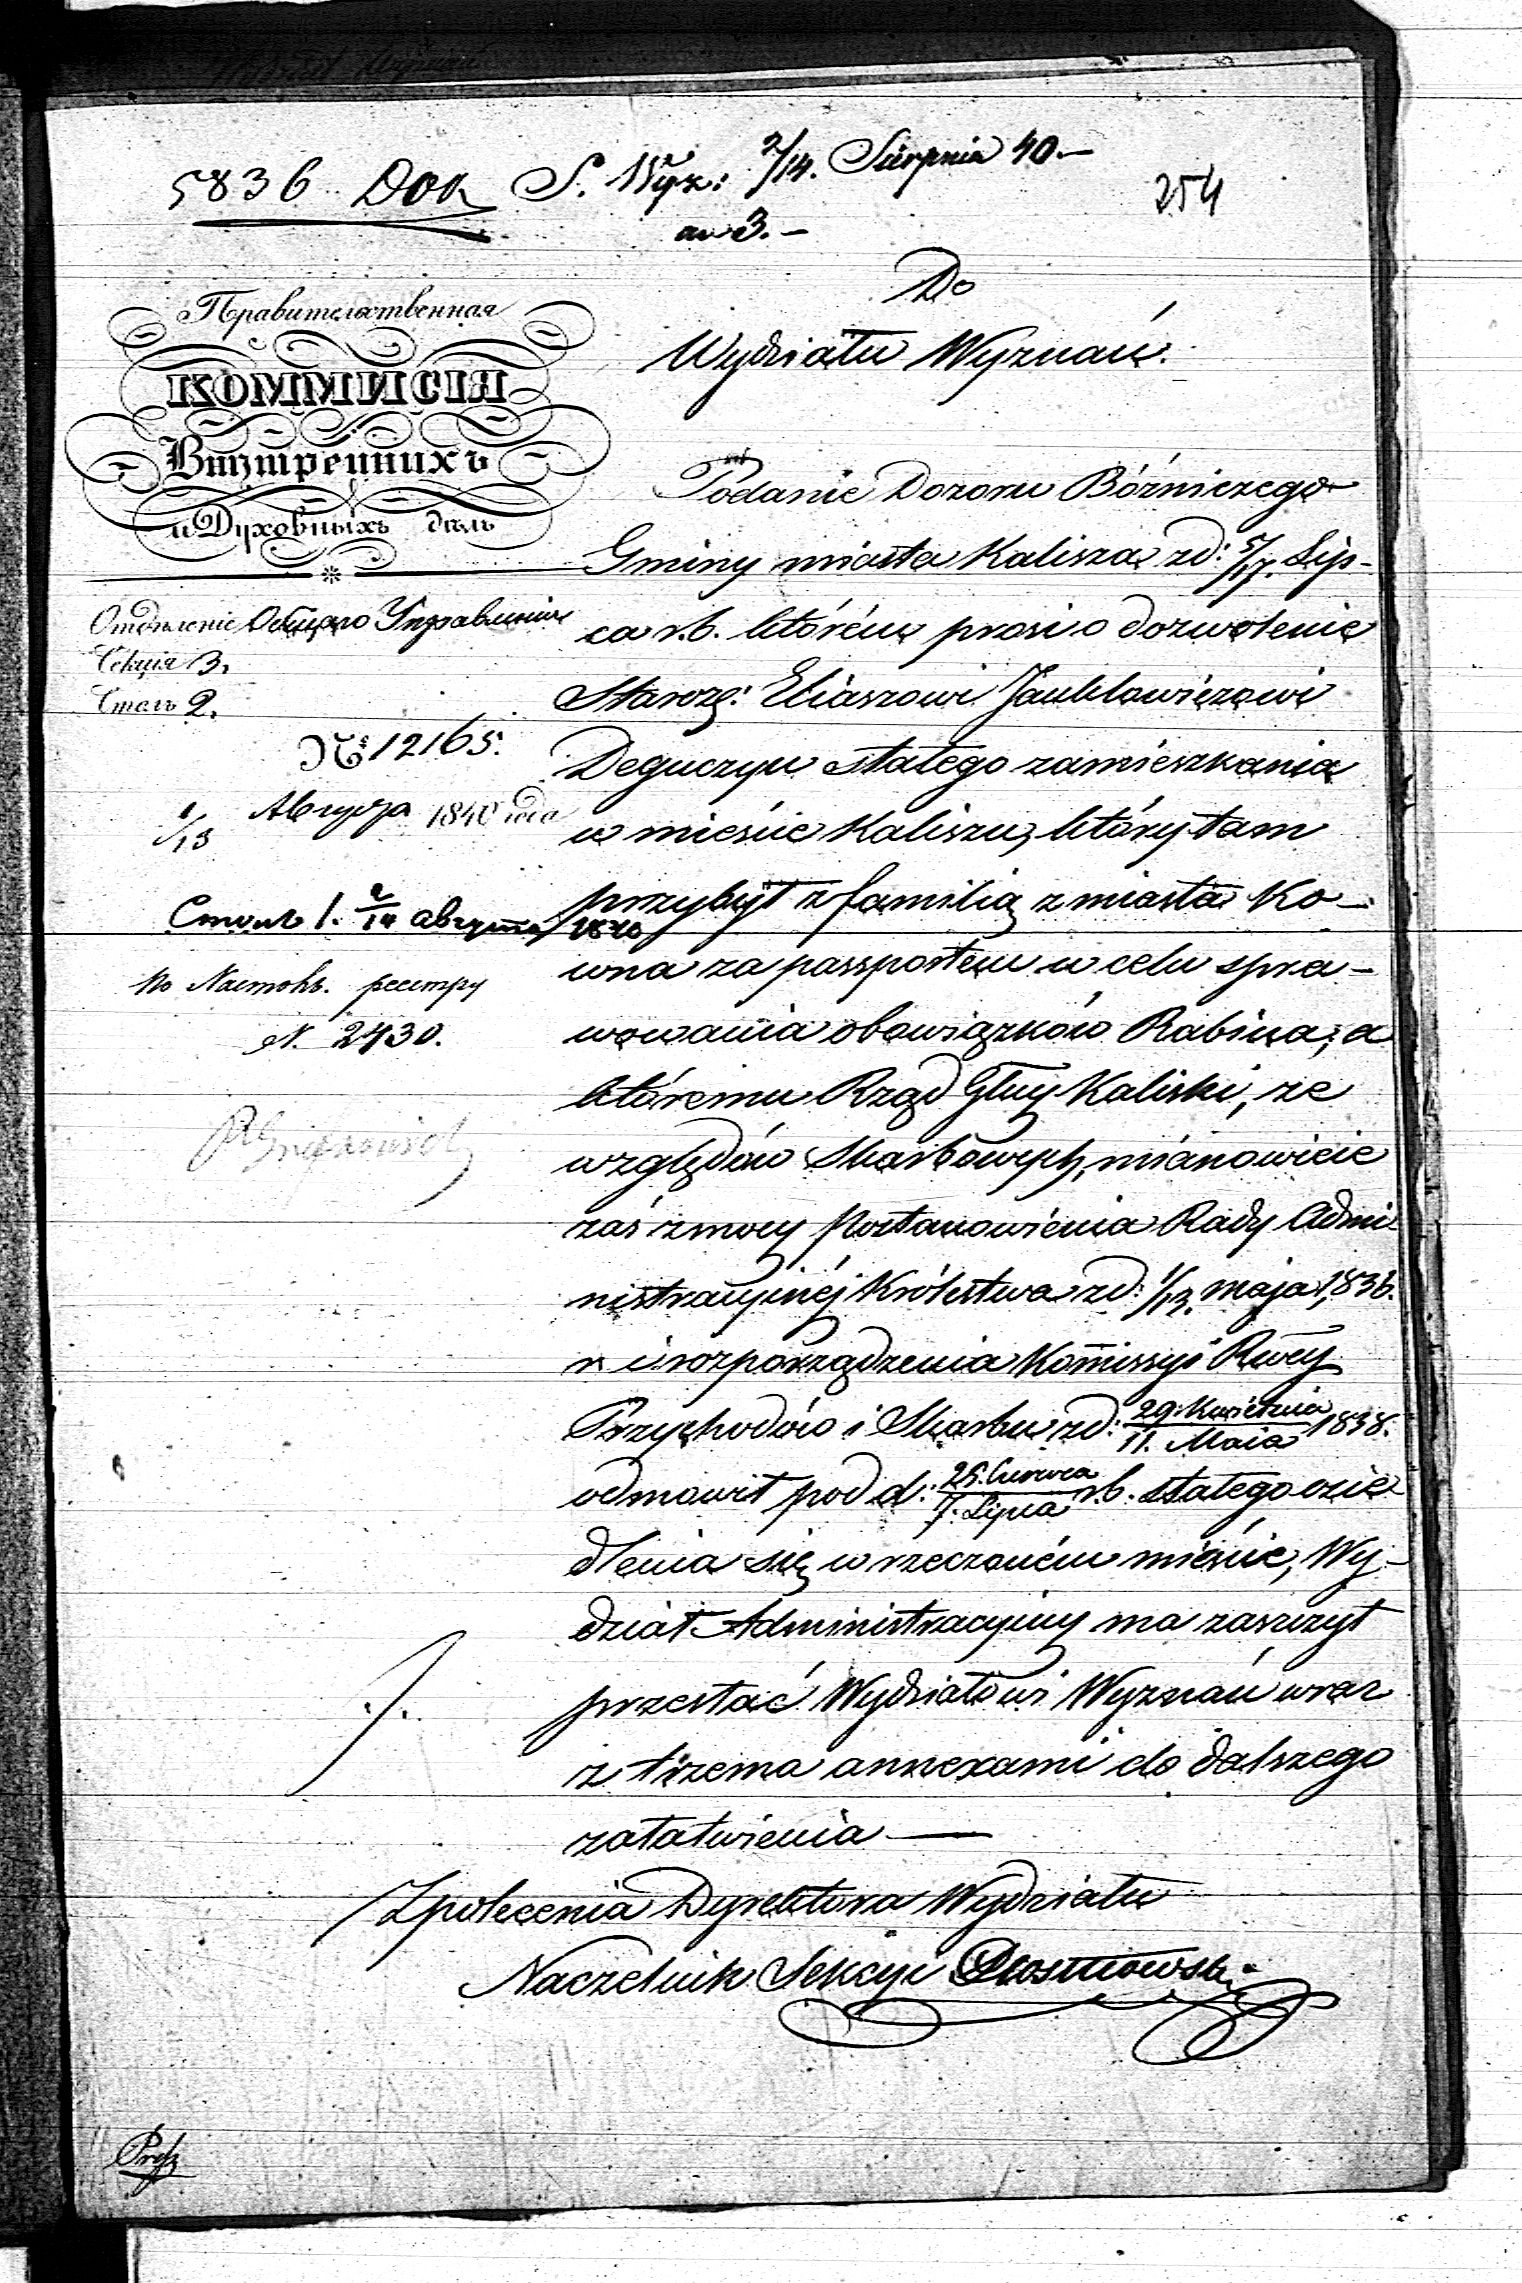 5836 Dok S. Wyz: 2/14. Sierpnia 40.—
an 3.—
254
Правительственная
КОММИСІЯ
Внутреннихъ
и Духовныхъ дѣлъ
Отдѣленіе Общаго Управленія
Секція 3.
Столъ 2.
№ 12165.
1/13 Августа 1840 года
Столъ 1. 2/14 августа 1840
по Настольн. реестру
N. 2430.
Do
Wydziału Wyznań.
Podanie Dozoru Bóżniczego
Gminy miasta Kalisza z d: 5/17. Lip-
ca r. b. którém prosi o dozwolenie
Starozę: Eliaszowi Jankielowiczowi
Deguczyu stałego zamieszkania
w mieście Kaliszu, który tam
przybył z familią z miasta Ko-
wna za passportem w celu spra-
wowania obowiązków Rabina, a
któremu Rząd Głny Kaliski, ze
względów Skarbowych, mianowicie
zaś z mocy Postanowienia Rady Admi-
nistracyinéj Królestwa z d: 1/13. Maja 1836.
r i rozporządzenia Kommissyi Rwéy
Przychodów i Skarbu z d: 29. Kwietnia/11. Maia 1838.
odmówił pod d: 25. Czerwca/7. Lipca r. b. stałego osie-
dlenia się w rzeczoném mieście, Wy-
dział Administracyiny ma zaszczyt
przesłać Wydziałowi Wyznań wraz
z trzema annexami do dalszego
załatwienia —
Z polecenia Dyrektora Wydziału
Naczelnik Sekcyi